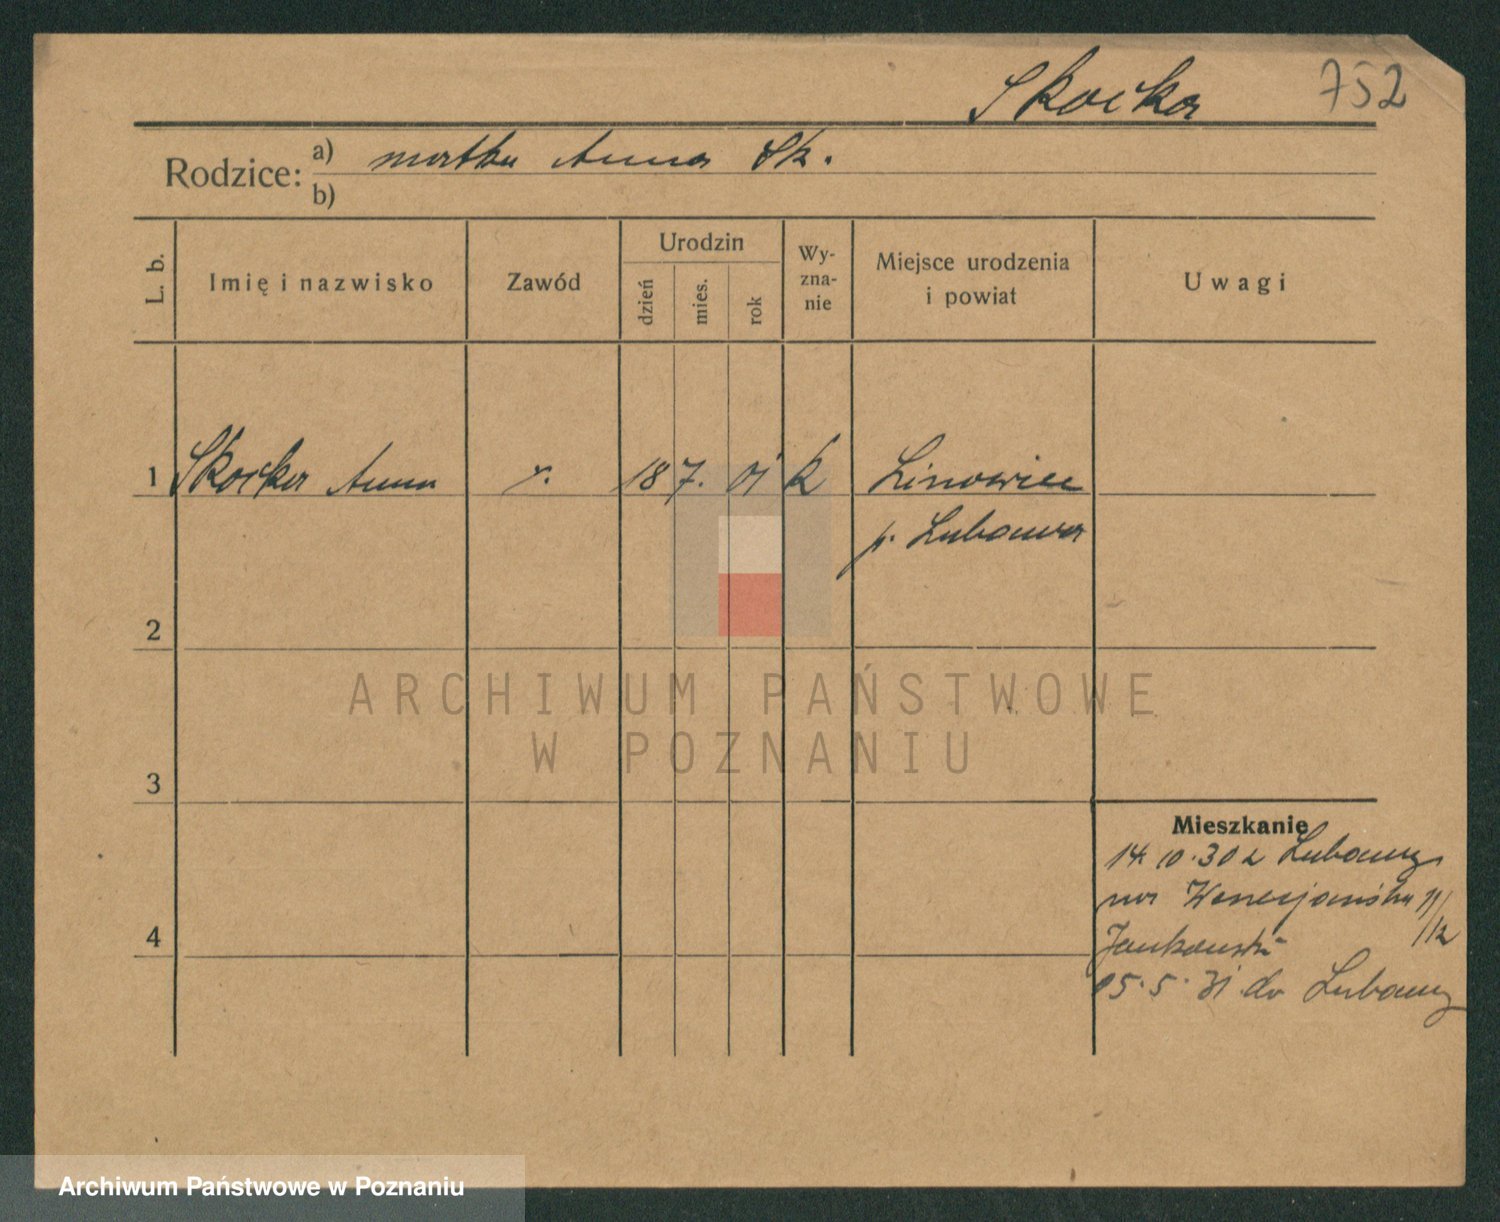 Skocka 752
Rodzice: a) matka Anna Sk.
b)
L. b. Imię i nazwisko Zawód Urodzin dzień mies. rok Wyznanie Miejsce urodzenia i powiat Uwagi
1 Skocka Anna r. 18 7. 01 k Linowiec
p. Lubawa
2
ARCHIWUM PAŃSTWOWE
W POZNANIU
3
Mieszkanie
14. 10. 30 z Lubawy
na Wenecjańska 11/12
4
Jankowski
05. 5. 31 do Lubawy
Archiwum Państwowe w Poznaniu